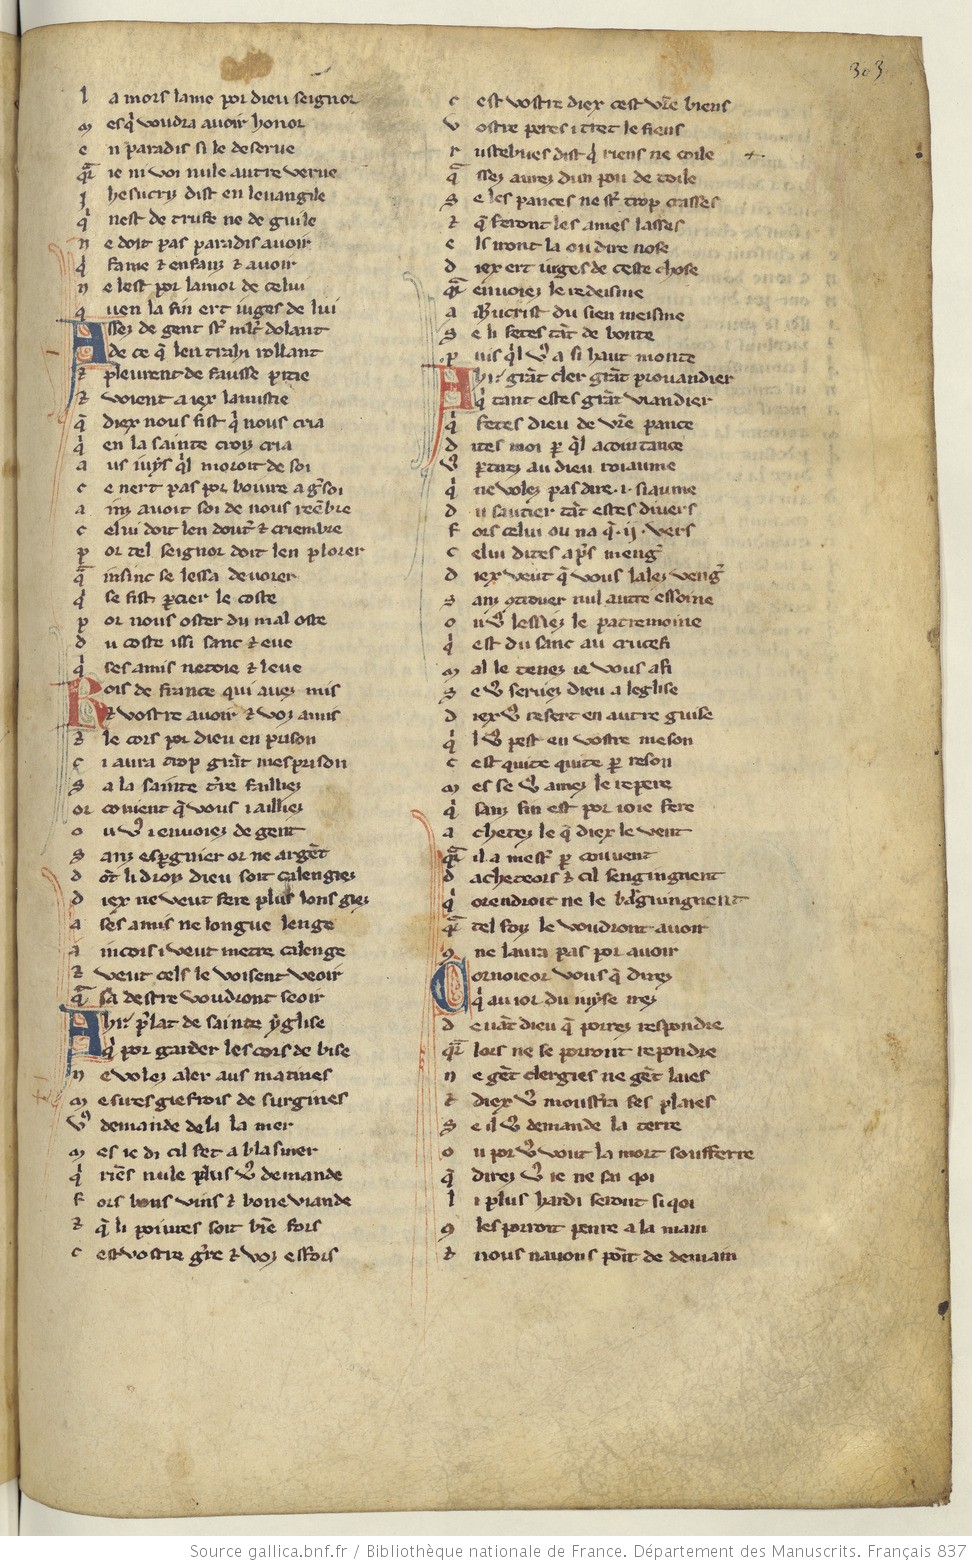 303
l a mors lame por dieu seignor
m es q̇ voudra avoir honor
e n paradis si le deserve
qr̄ ie ni voi nule autre verve
J hesucriz dist en levangile
q̇ nest de trufe ne de guile
n e doit pas paradis avoir
q̇ fame ⁊ enfanz ⁊ avoir
n e lest por lamor de celui
q uen la fin ert iuges de lui
A ssez de gent sōt ml't dolant
de ce q̄ len trahi rollant
⁊ pleurent de fausse pitie
⁊ voient a iex lamistie
q̄ diex nous fist q̇ nous cria
q̇ en la sainte croiz cria
a us iuys q̇l moroit de soi
c e nert pas por boivre a g̃soi
a inz avoit soi de nous reēbre
c elui doit len dout̃ ⁊ criembre
p or tel seignor doit len plorer
q̄ insinc se lessa devorer
q̇ se fist ꝑcier le coste
p or nous oster du mal oste
d u coste issi sanc ⁊ eve
q̇ ses amis netoie ⁊ leve
R ois de france qui avez mis
⁊ vostre avoir ⁊ voz amis
⁊ le cors por dieu en prison
c i aura trop grāt mesprison
s a la sainte t̃re failliez
or covient q̄ vous i ailliez
o u v9 i envoiez de gent
s anz espgnier or ne argēt
d ōt li droiz dieu soit calengiez
d iex ne veut fere plus lons giez
a ses amis ne longue lenge
a incois i veut metre calenge
⁊ veut cels le voisent veoir
q̄ sa destre voudront seoir
A hi p̃lat de sainte yglise
q̇ por garder les cors de bise
n e volez aler aus matines
m esires giefrois de surgines
v9 demande dela la mer
m es ie di cil fet a blasmer
q̇ riēs nule plus v9 demande
f ors bons vins ⁊ bone viande
⁊ q̄ li poivres soit biē fors
c est vostre g̃re ⁊ voz esfors
c est vostre diex cest vr̄e biens
v ostre peres i tret le fiens
r ustebues dist q̇ riens ne coile
q̄ ssez aurez dun pou de toile
s e les pances ne sōt trop crasses
⁊ q̄ feront les ames lasses
e ls iront la ou dire nose
d iex ert iuges de ceste chose
qr̄ envoiez le redeisme
a ih̄ucrist du sien meisme
s e li fetes tāt de bonte
p uis q̇l v9 a si haut monte
A hi grāt cler grāt provandier
q̇ tant estes grāt viandier
q̇ fetes dieu de vr̄e pance
d ites moi ꝑ q̇l acointance
v9 ꝑtirez au dieu roiaume
q̇ ne volez pas dire .i. siaume
d u sautier tāt estes divers
f ors celui ou na q̄ .ij. vers
c elui dites ap̃s meng̃
d iex veut q̄ vous lalez veng̃
s anz ꝯtrover nul autre essoine
o u v9 lessiez le patremoine
q̇ est du sanc au crucefi
m al le tenez ie vous afi
s e v9 servez dieu a leglise
d iex v9 resert en autre guise
q̇ l v9 pest en vostre meson
c est quite quite ꝑ reson
m es se v9 amez le repere
q̇ sanz fin est por ioie fere
a chetez le q̄ diex le vent
qr̄ il a mestr̃ ꝑ couvent
d acheteors ⁊ cil sengingnent
q̇ orendroit ne le bargingnent
qr̄ tel foiz le voudront avoir
ꝯ ne laura pas por avoir
T ornoieor vous q̄ direz
q̇ au ior du iuyse irez
d evāt dieu q̄ porrez respondre
qr̄ lors ne se porront repondre
n e gēt clergies ne gēt laies
⁊ diex v9 moustra ses plaies
s e il v9 demande la terre
o u por v9 vout la mort soufferre
q̄ direz v9 ie ne sai qoi
l i plus hardi seront si qoi
ꝯ les porroit penre a la main
⁊ nous navons poīt de demain
Source gallica.bnf.fr / Bibliothèque nationale de France. Département des Manuscrits. Français 837